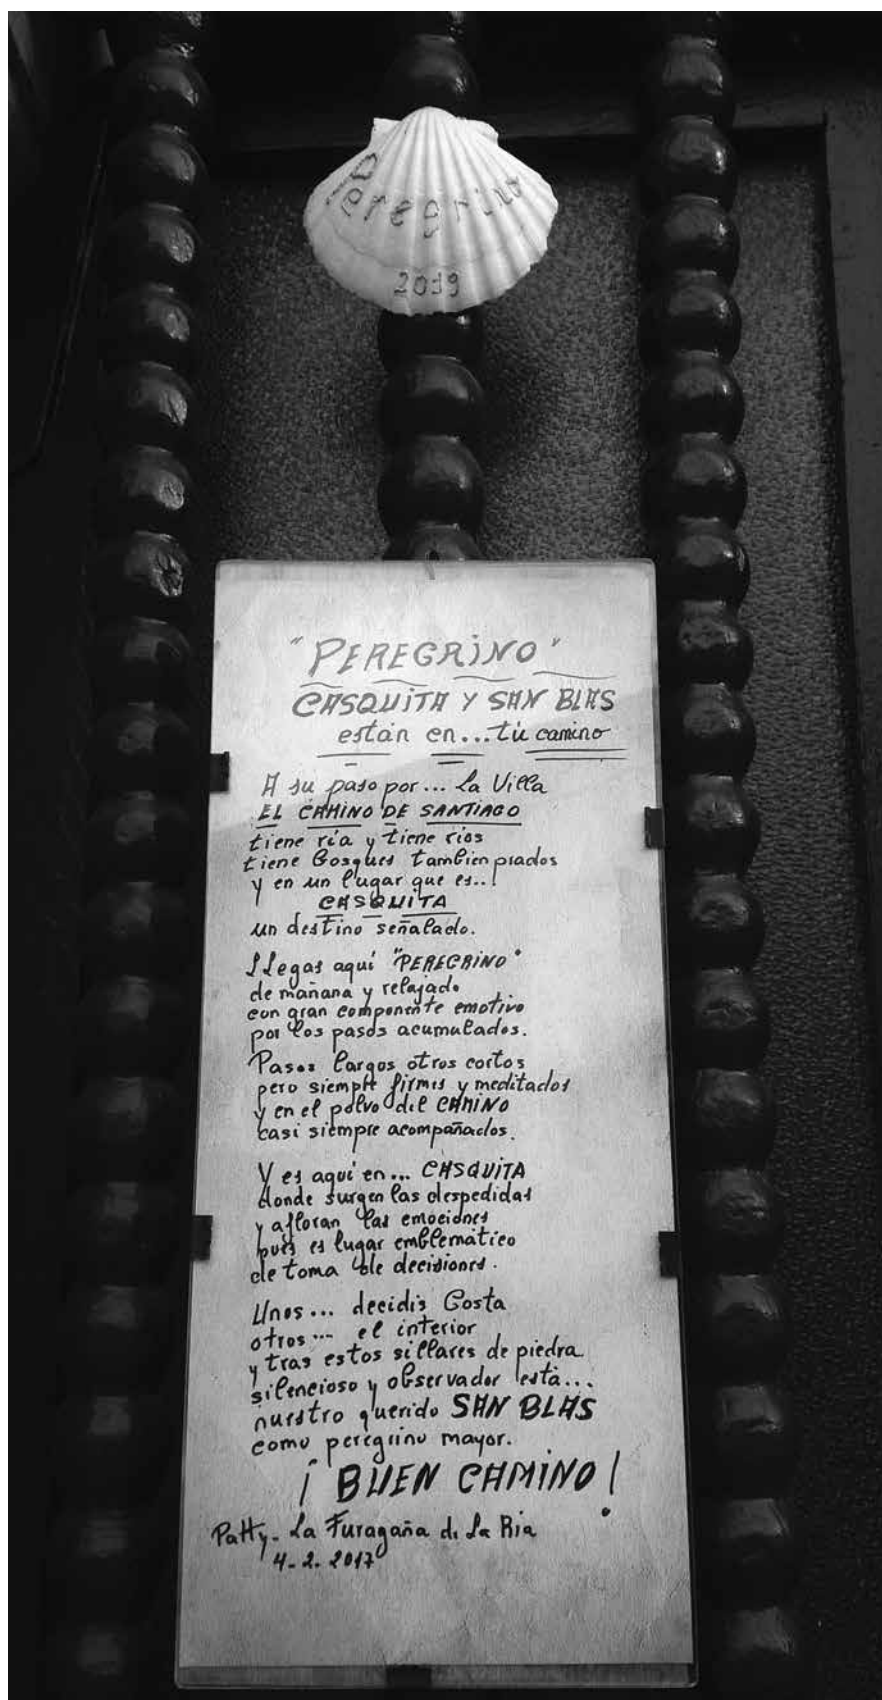 Peregrino
2019
"PEREGRINO"
CASQUITA Y SAN BLAS
están en...tú camino
A su paso por... La Villa
EL CAMINO DE SANTIAGO
tiene ría y tiene ríos
tiene bosques tambien prados
y en un lugar que es...
CASQUITA
un destino señalado.
Llegas aquí "PEREGRINO"
de mañana y relajado
con gran componente emotivo
por los pasos acumulados.
Pasos largos otros cortos
pero siempre firmes y meditados
y en el polvo del CAMINO
casi siempre acompañados.
Y es aquí en... CASQUITA
donde surgen las despedidas
y afloran las emociones
pues es lugar emblemático
de toma de decisiones.
Unos... decidís Costa
otros... el interior
y tras estos sillares de piedra
silencioso y observador está...
nuestro querido SAN BLAS
como peregrino mayor.
¡BUEN CAMINO!
Patty - La Furagaña de La Ria
4-2-2017